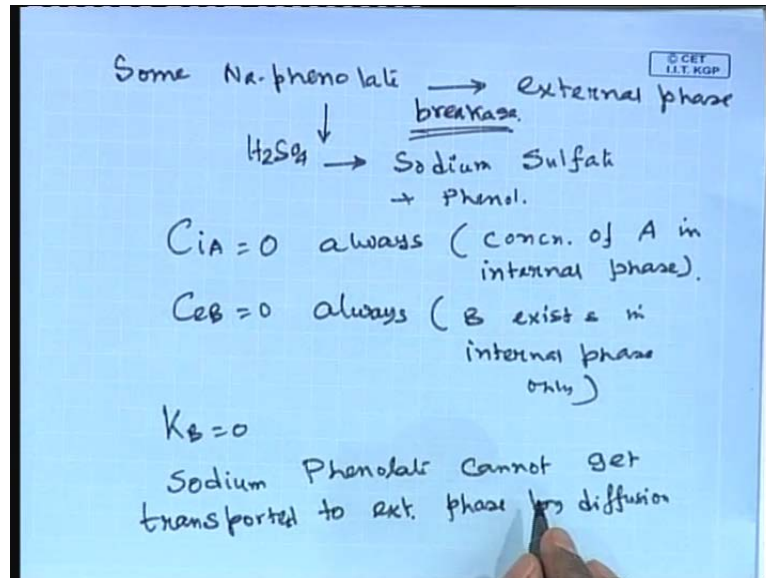 Some Na-phenolate → external phase
© CET
I.I.T. KGP
↓ breakage.
H2SO4 → Sodium Sulfate
+ Phenol.
CiA = 0 always ( concn. of A in
internal phase).
CeB = 0 always ( B exists in
internal phase
only)
KB = 0
Sodium Phenolate cannot get
transported to ext. phase by diffusion